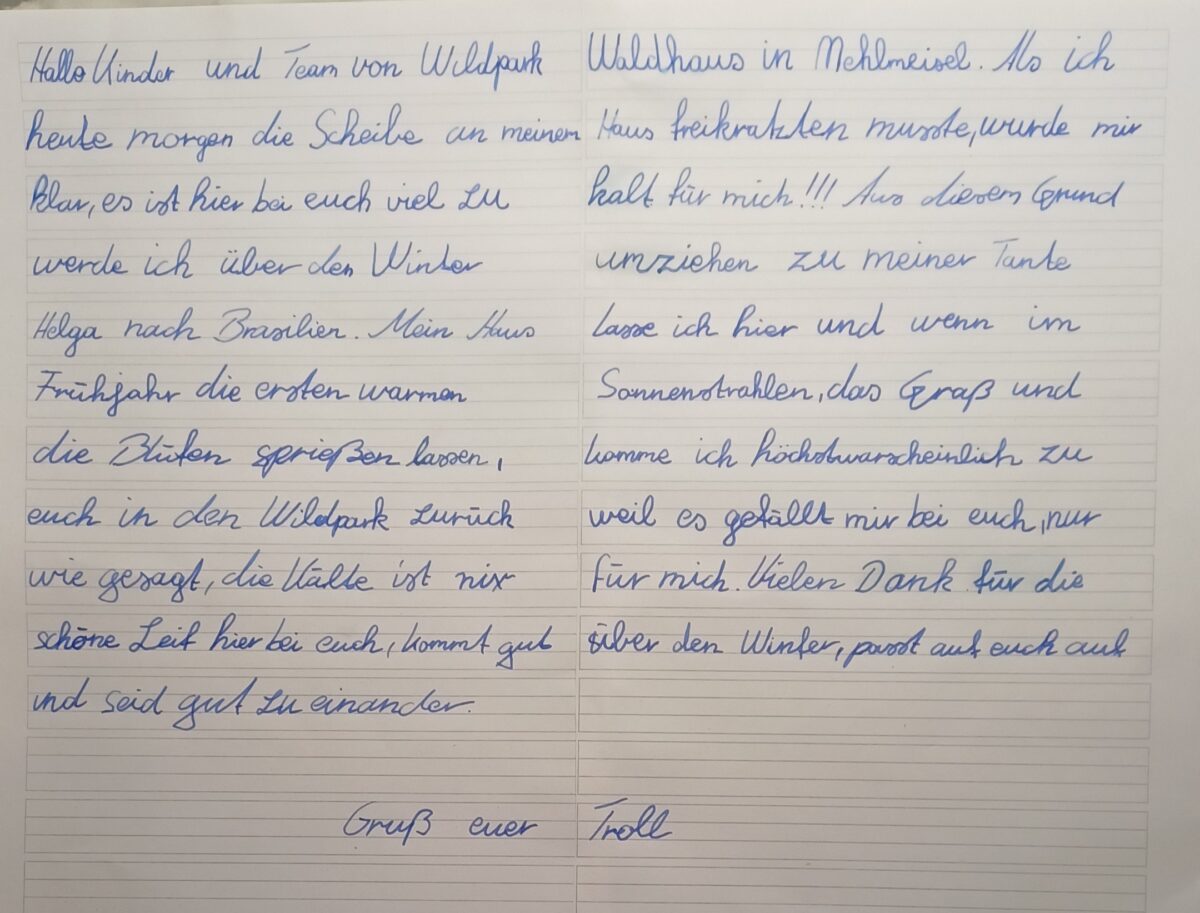 Hallo Kinder und Team von Wildpark Waldhaus in Mehlmeisel. Als ich
heute morgen die Scheibe an meinem Haus freikratzten musste, wurde mir
klar, es ist hier bei euch viel zu kalt für mich!!! Aus diesem Grund
werde ich über den Winter umziehen zu meiner Tante
Helga nach Brasilien. Mein Haus lasse ich hier und wenn im
Frühjahr die ersten warmen Sonnenstrahlen, das Graß und
die Blüten sprießen lassen, komme ich höchstwarscheinlich zu
euch in den Wildpark zurück weil es gefällt mir bei euch, nur
wie gesagt, die Kälte ist nix für mich. Vielen Dank für die
schöne Zeit hier bei euch, kommt gut über den Winter, passt auf euch auf
und seid gut zu einander.
Gruß euer Troll